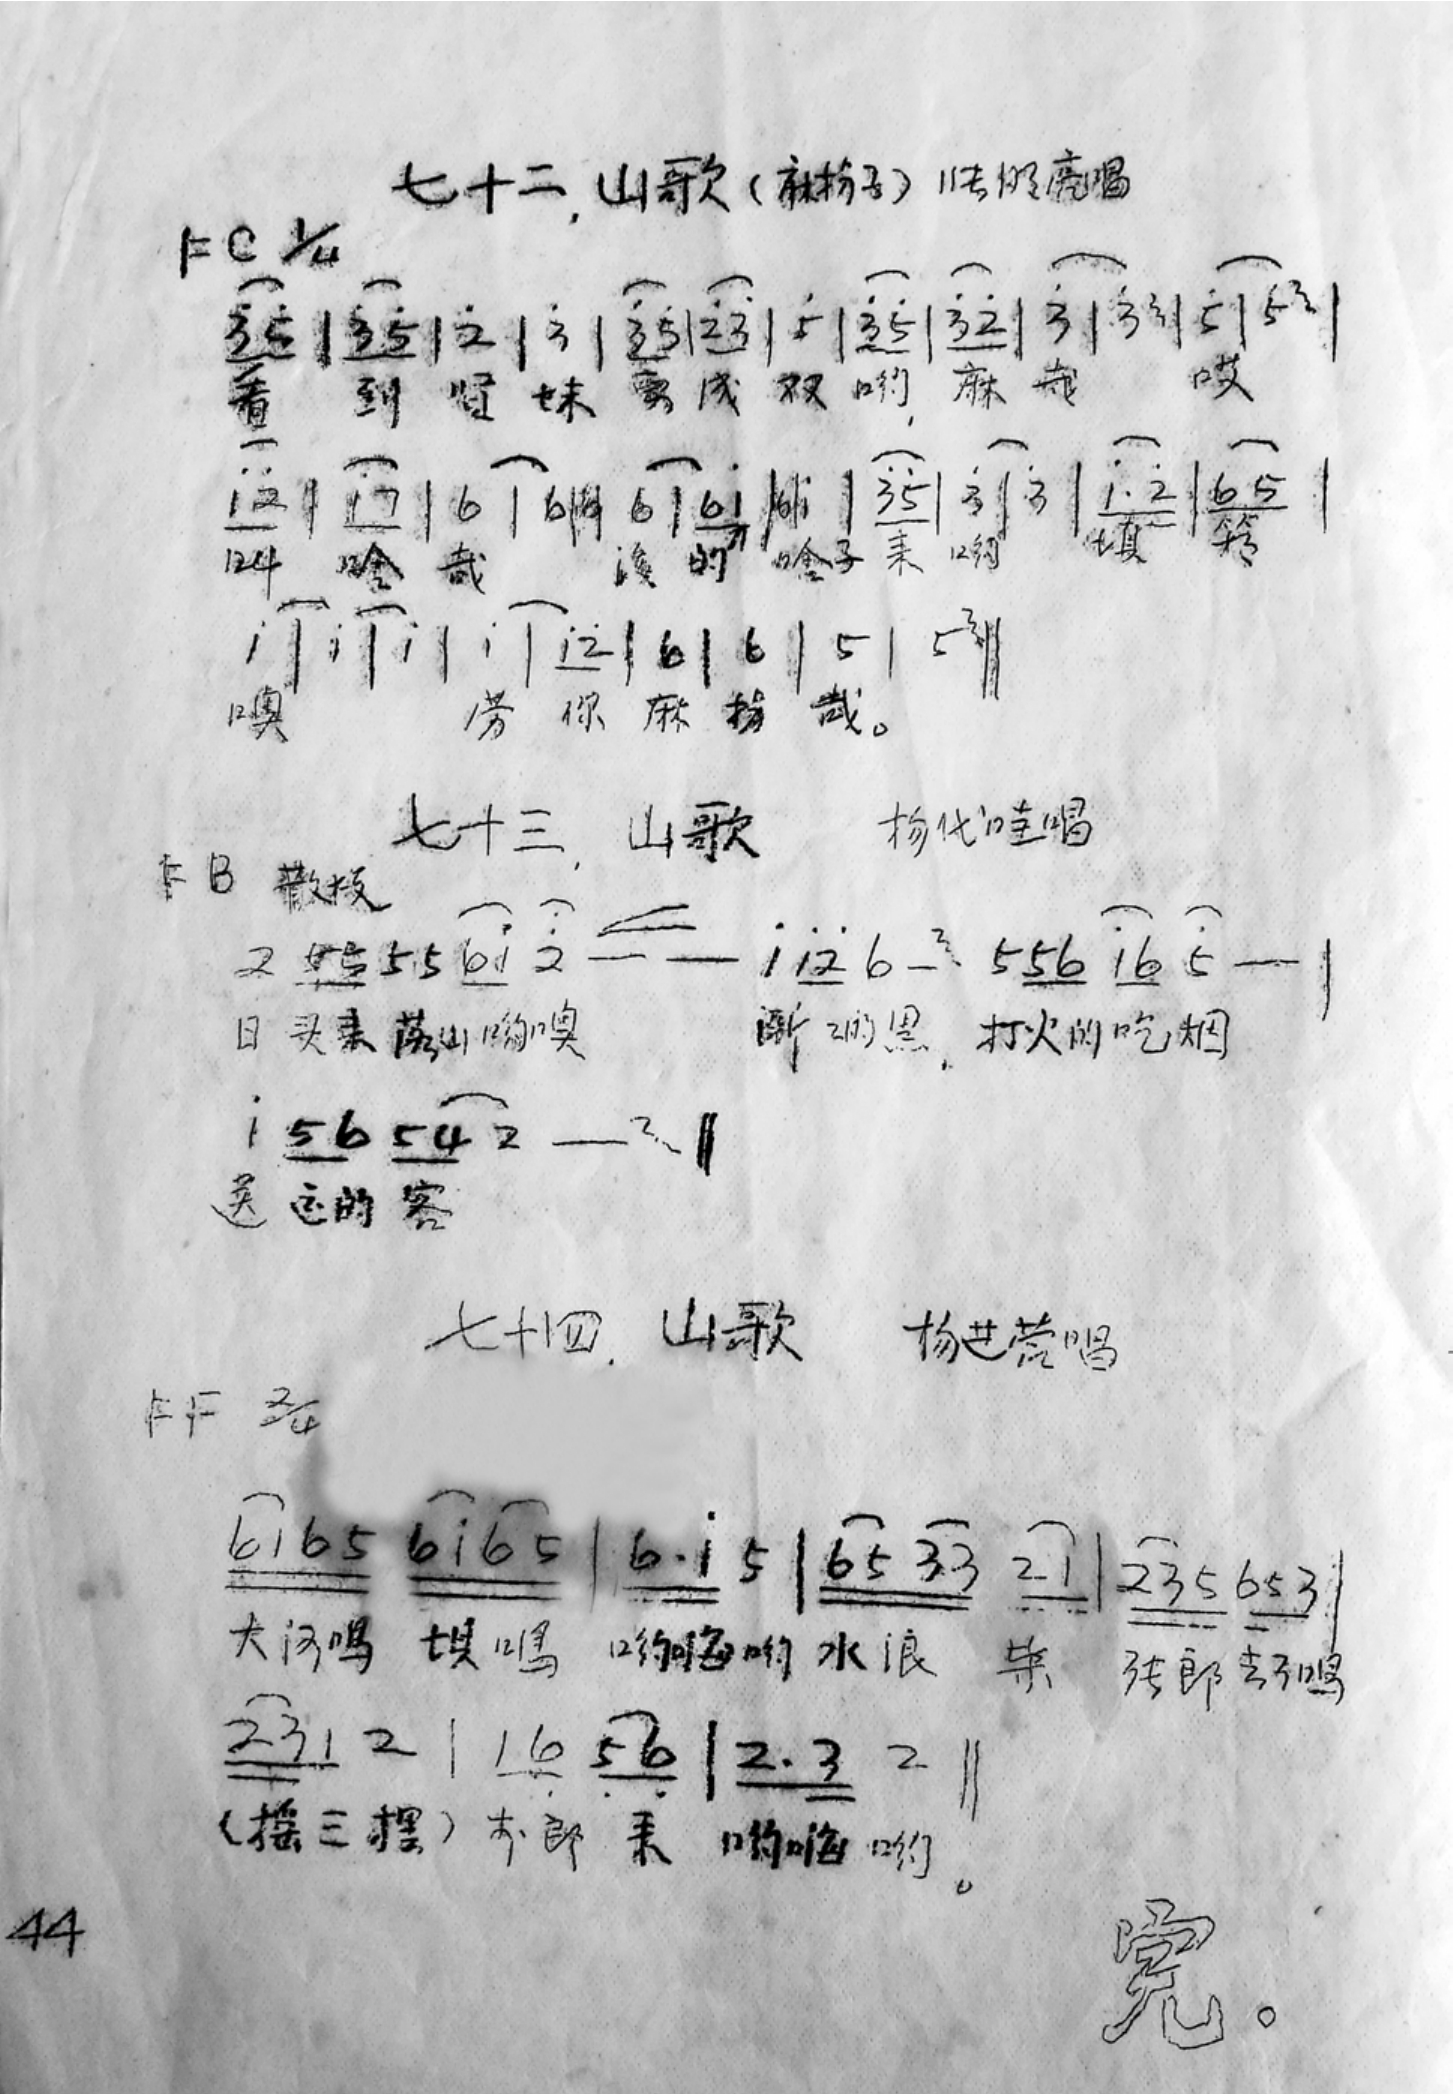 七十二、山歌（麻扮子） 唱
1=C 1/4
3̇5̇ | 3̇5̇ | 2̇ | 3̇ | 3̇5̇ | 2̇3̇ | 5̇ | 3̇5̇ | 3̇2̇ | 3̇ | 3̇ | 5̇ | 5̇ |
看 到 贤 妹 要 成 双 哟， 麻 哉 哎
1̇2̇ | 1̇7 | 6 | 6 | 6 | 61̇ | 61̇ | 3̇5̇ | 3̇ | 3̇ | 1̇·2̇ | 65 |
啥 哉 的 啥子 来 哟 填 
1̇ | 1̇ | 1̇ | 1̇ | 1̇2̇ | 6 | 6 | 5 | 5 ‖
噢 劳 你 麻 扮 哉。
七十三、山歌 杨代哇唱
1=B 散板
2 55 55 61̇ 2̇ — — 1̇ 1̇2̇ 6 — 556 1̇6 5 — |
日头来落山哟噢 渐渐黑、打火的吃烟
1̇ 56 54 2 — ‖
送 的 客
七十四、山歌 杨进营唱
1=F 2/4
61̇65 61̇65 | 6·1̇ 5 | 65 33 21 | 235 653 |
大河嘛 坝嘛 哟嗨哟 水浪 柴 张郎 嘛
231 2 | 16 56 | 2·3 2 ‖
（摇三摆） 郎 来 哟嗨哟。
44
完。